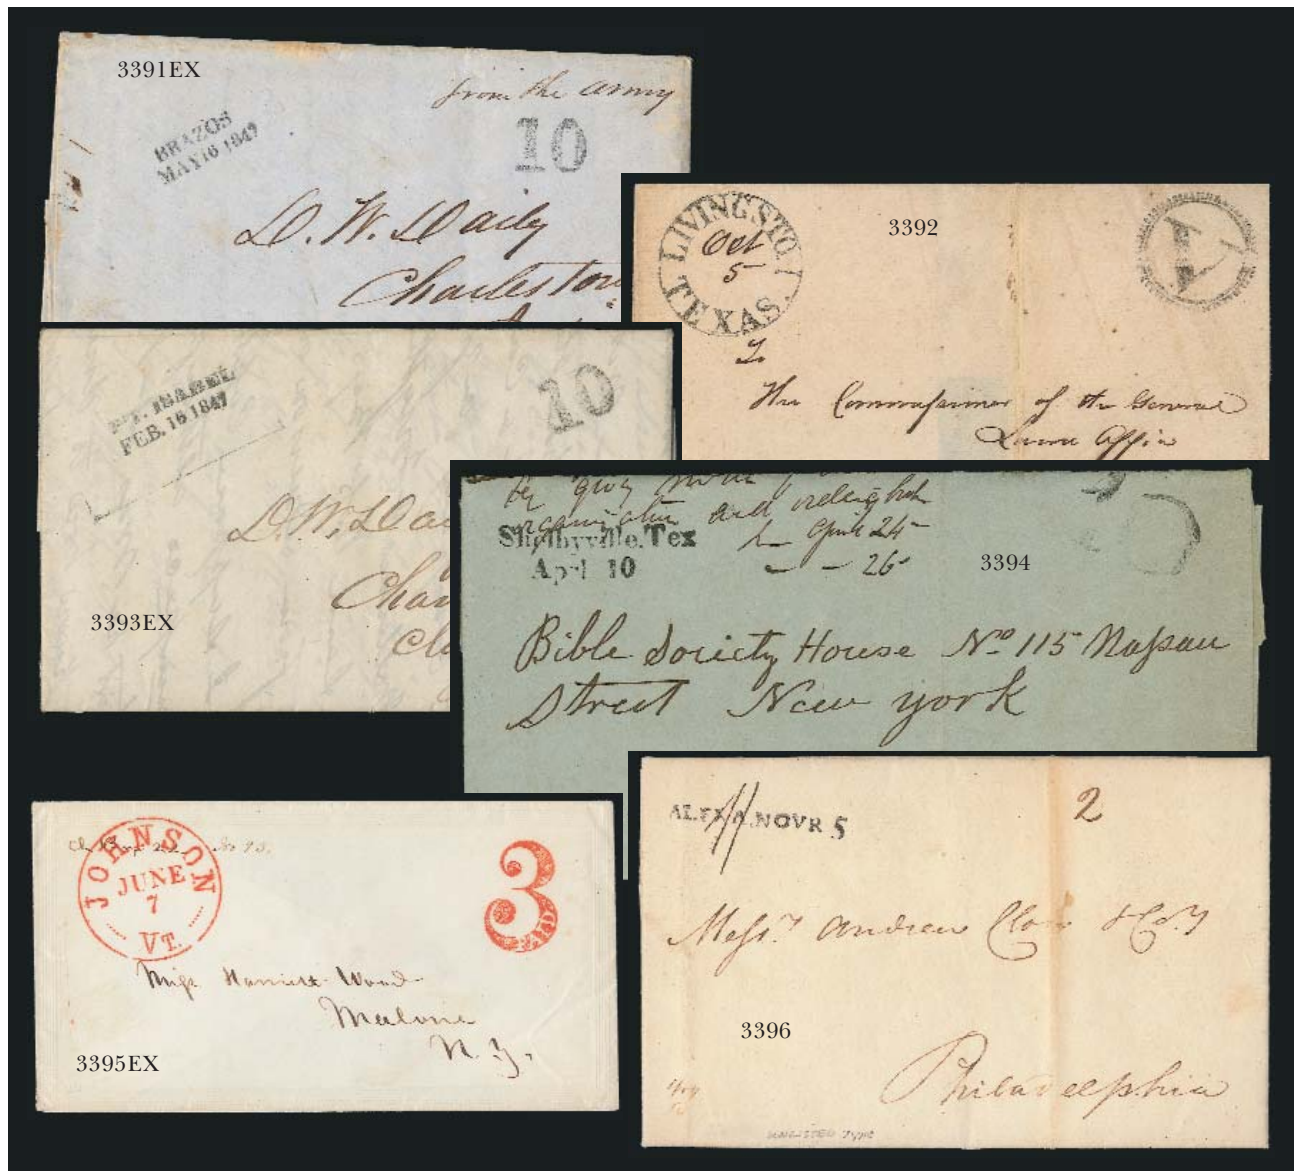 3391EX
from the army
BRAZOS
MAY 16 1847
10
D. W. Daily
Charleston
LIVINGSTO
Oct
5
TEXAS.
3392
To
The Commissioner of the General
Land Office
PT. ISABEL
FEB. 16 1847
10
D. W. Dai
Char
3393EX
organization and
April 24
26
Shelbyville, Tex
Apr 10
3394
Bible Society House No 115 Nassau
Street New york
JOHNSON
JUNE
7
VT.
3
PAID
Miss Harriet Wood
Malone
N. Y.
3395EX
ALEXA. NOVR 5
2
Messrs Andrew Clow & Coy
3396
Philadelphia
UNLISTED TYPE